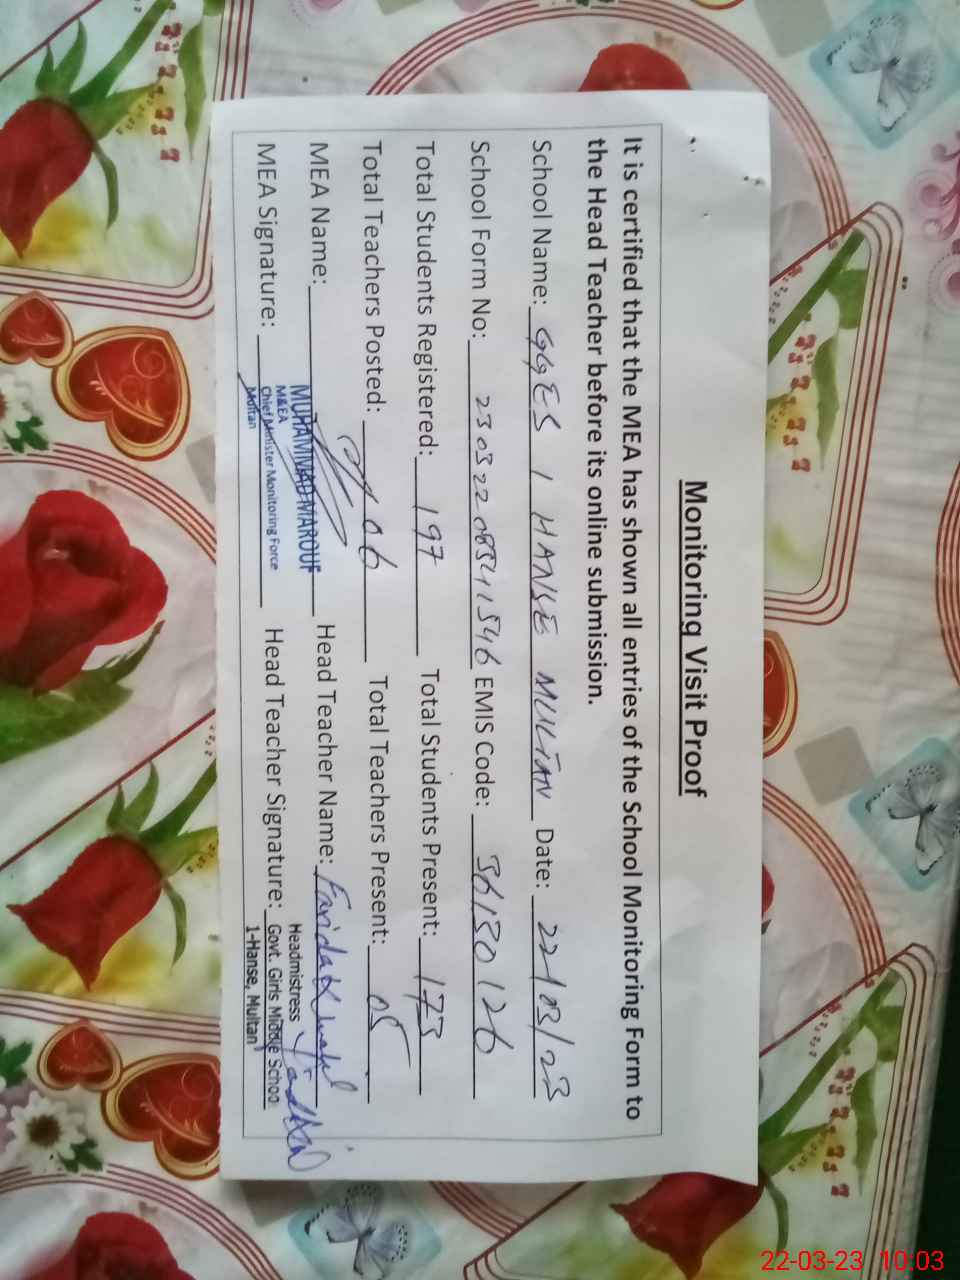 Monitoring Visit Proof
It is certified that the MEA has shown all entries of the School Monitoring Form to
the Head Teacher before its online submission.
School Name: GGES 1 HANSE MULTAN Date: 22/03/23
School Form No: 230322085411546 EMIS Code: 36150126
Total Students Registered: 197 Total Students Present: 173
Total Teachers Posted: 06 Total Teachers Present: 05
MEA Name: MUHAMMAD MAROUF Head Teacher Name: Farida
M&EA Headmistress
MEA Signature: Chief Minister Monitoring Force Head Teacher Signature: Govt. Girls Middle School
Multan 1-Hanse, Multan
22-03-23 10:03